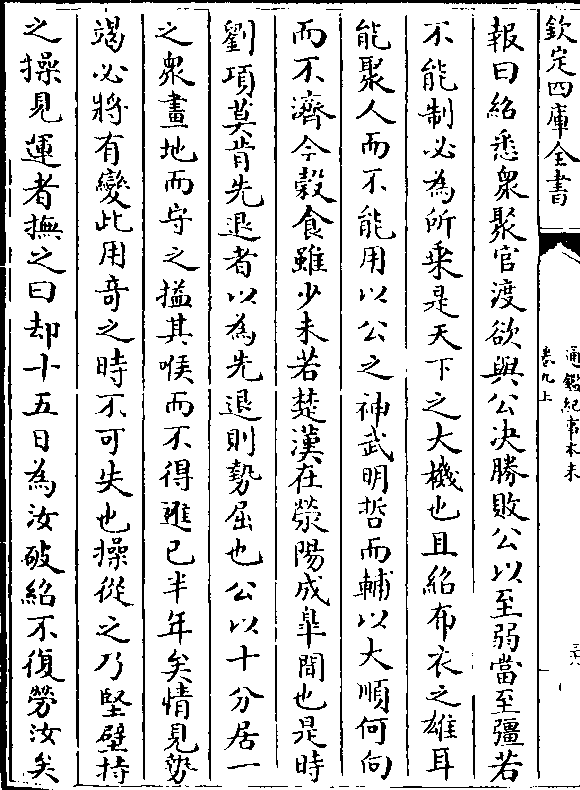 欽定四庫全書
通鑑紀事本末
卷九上
報曰紹悉衆聚官渡欲與公決勝敗公以至弱當至彊若
不能制必為所乗是天下之大機也且紹布衣之雄耳
能聚人而不能用以公之神武明哲而輔以大順何向
而不濟今糓食雖少未若楚漢在滎陽成臯間也是時
劉項莫肯先退者以為先退則勢屈也公以十分居一
之衆畫地而守之搤其喉而不得進已半年矣情見勢
竭必將有變此用竒之時不可失也操從之乃堅壁持
之操見運者撫之曰却十五日為汝破紹不復勞汝矣